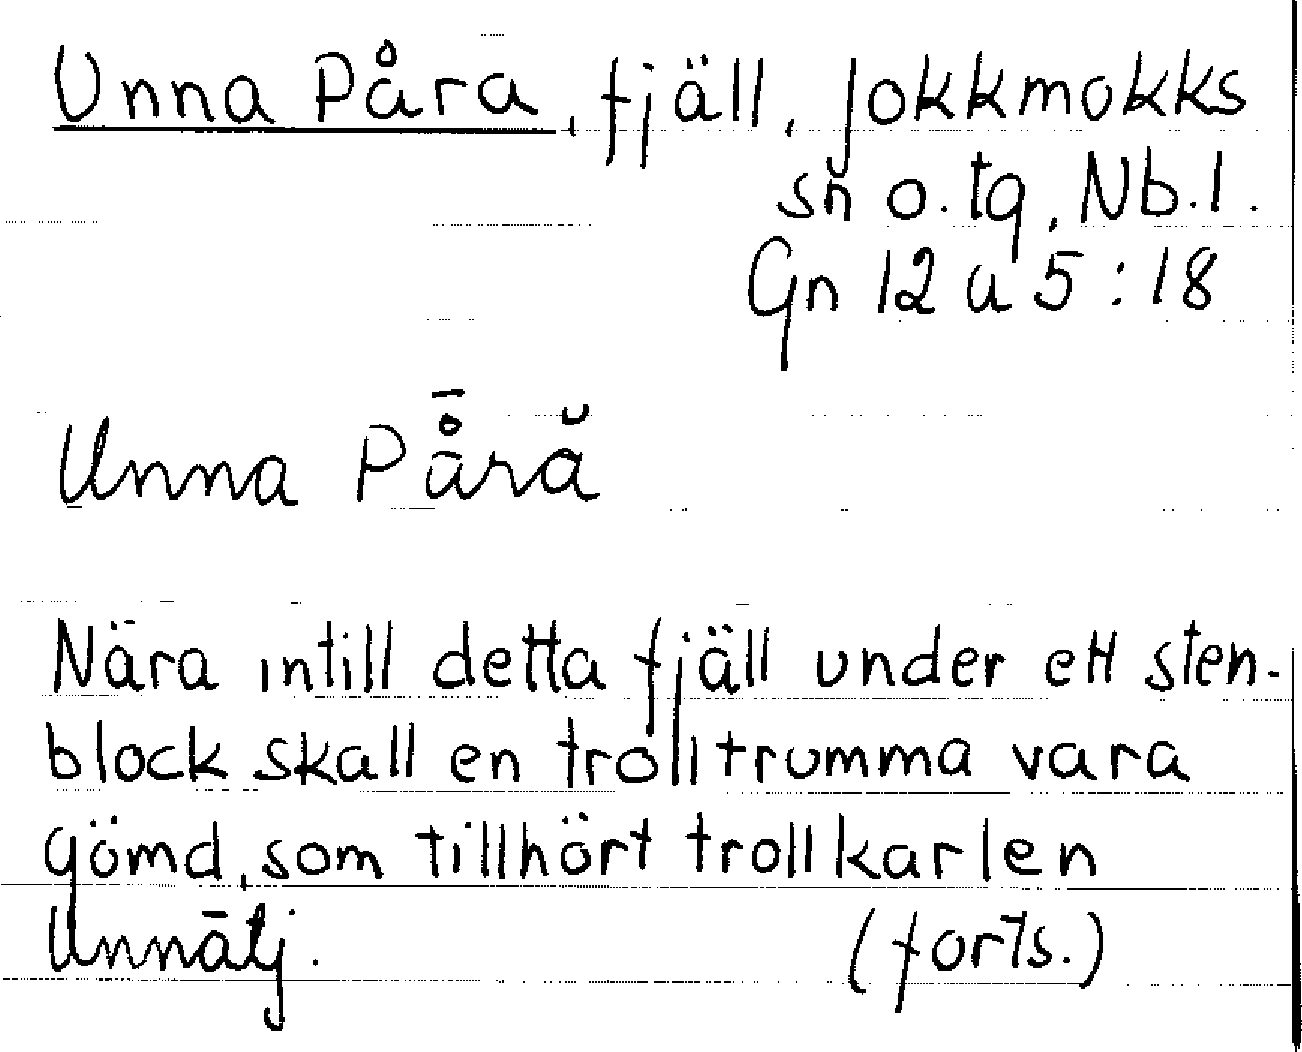 Unna Påra, fjäll, Jokkmokks
sn o. tg, Nb. l.
Gn 12 a 5:18
Unna På̄ră
Nära intill detta fjäll under ett sten-
block skall en trolltrumma vara
gömd, som tillhört trollkarlen
Unnātj. (forts.)